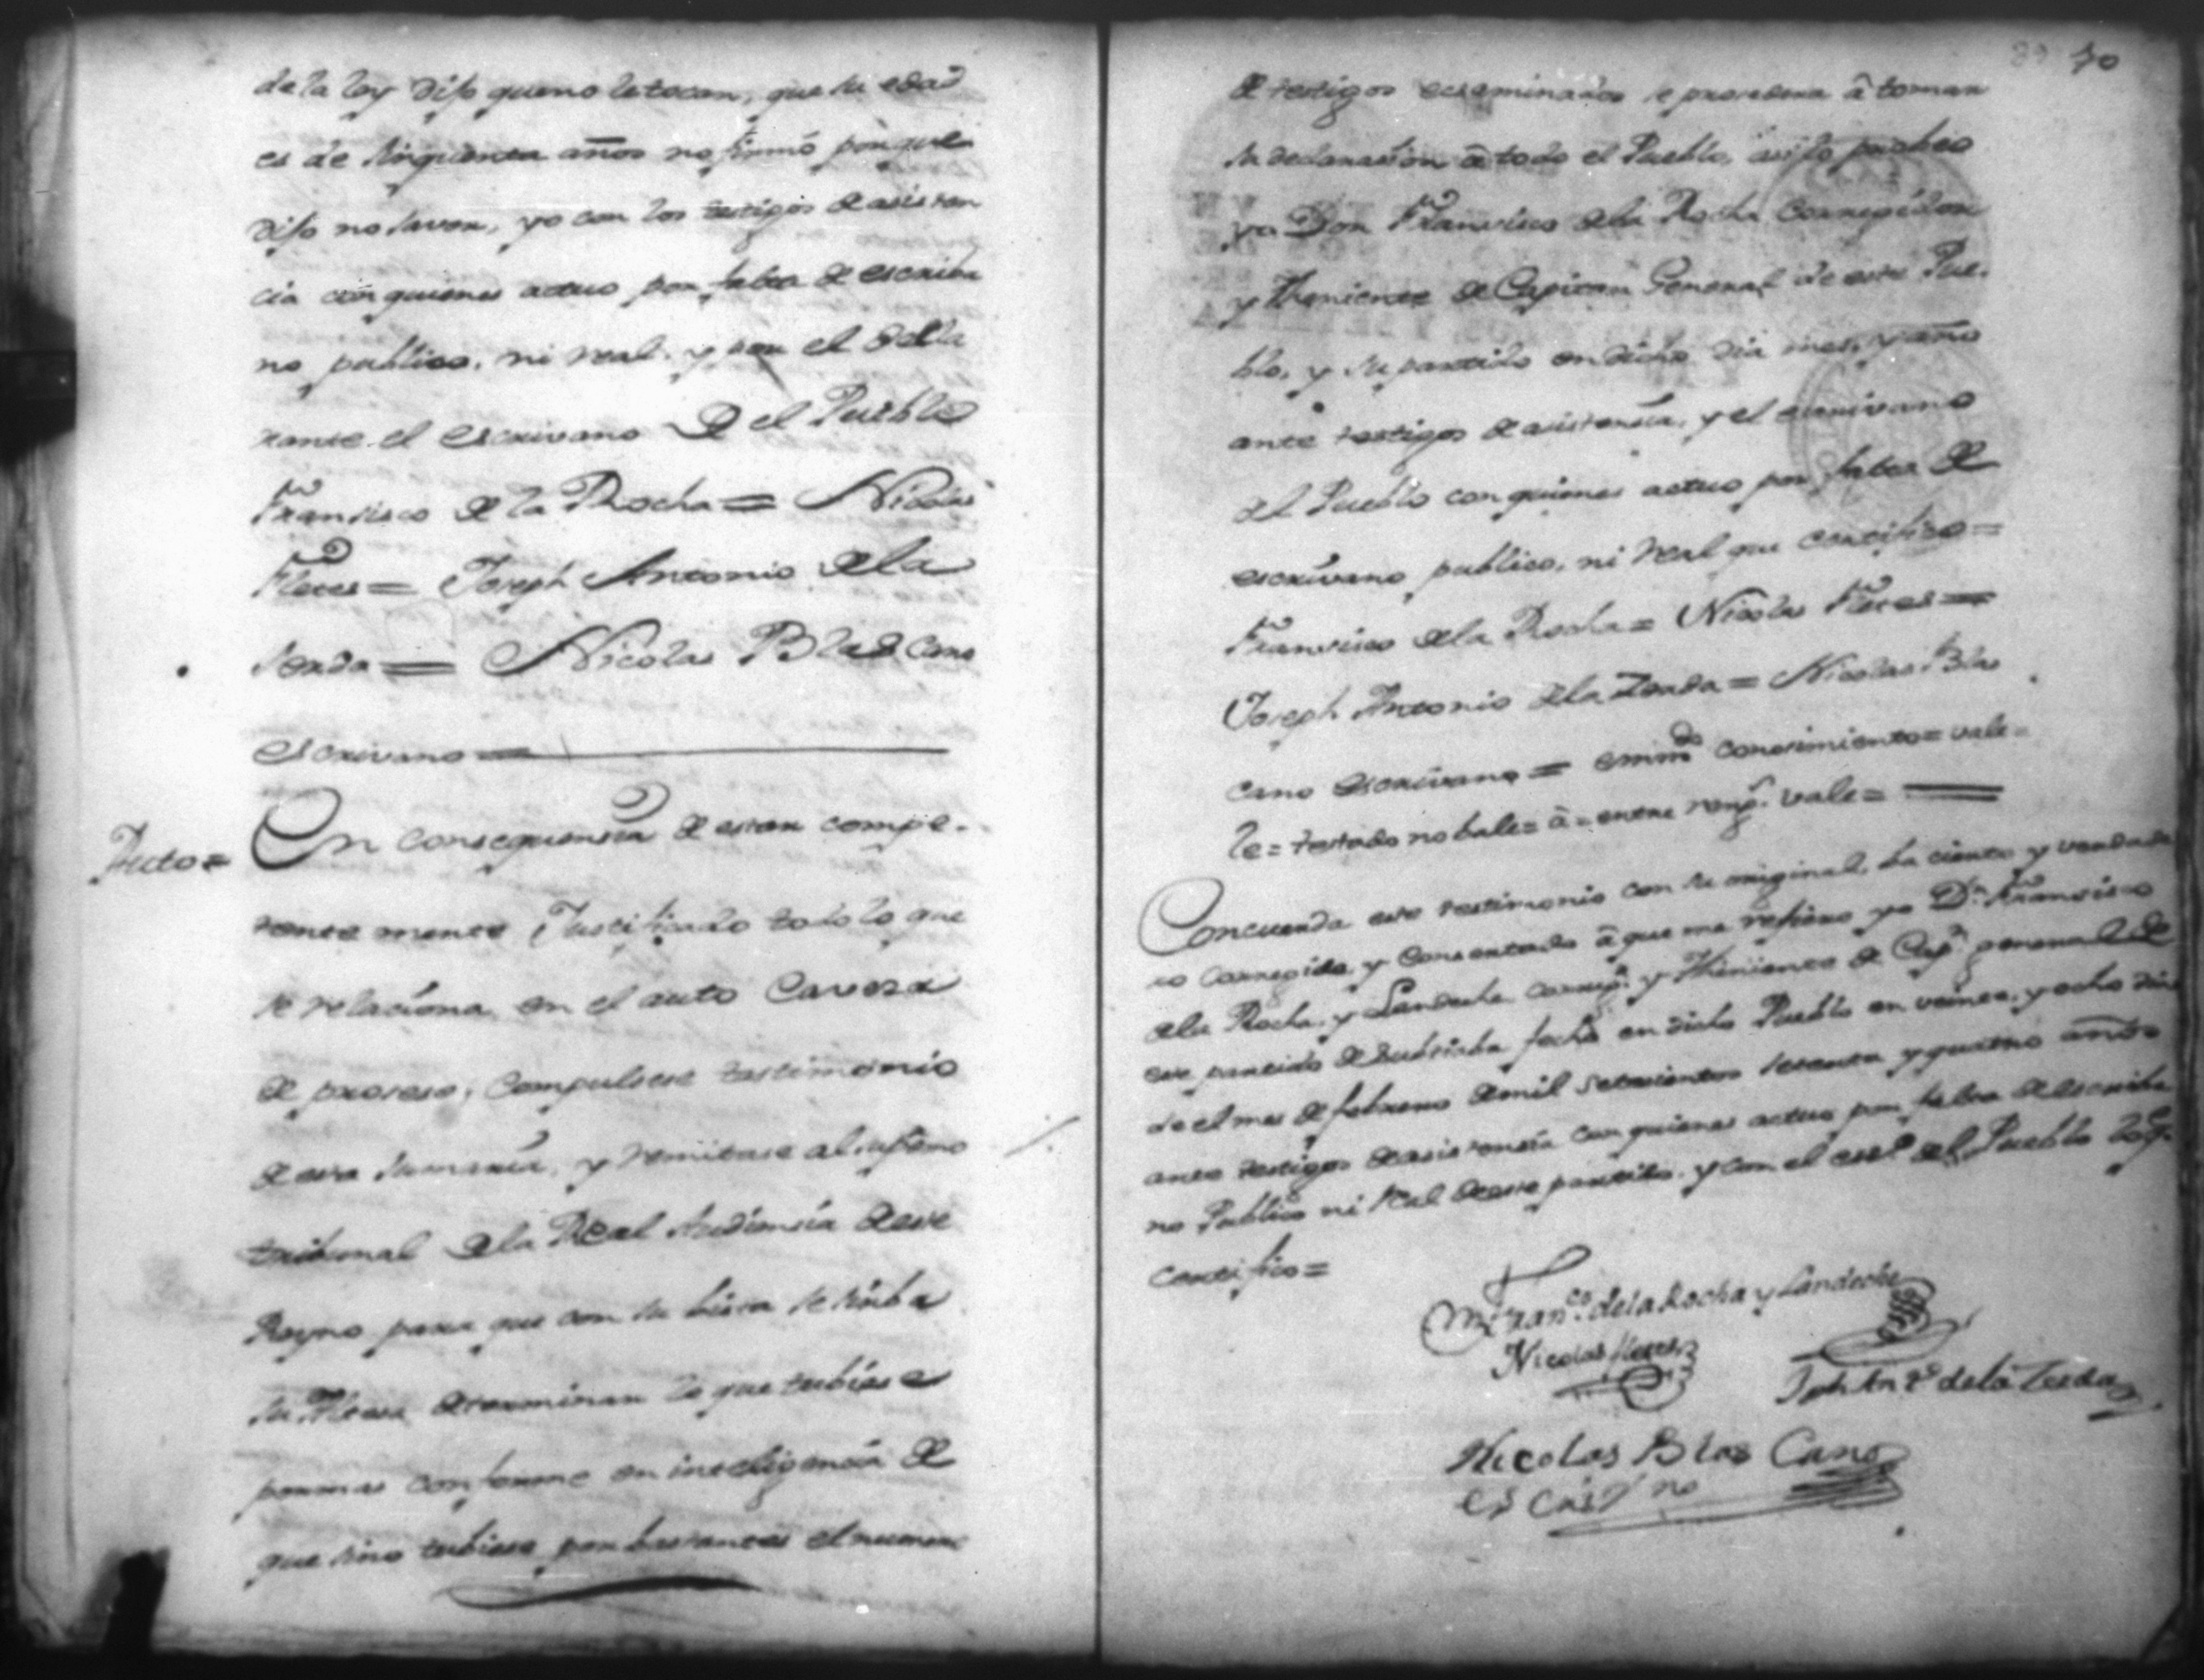 de la ley dijo queno letocan, que su edad
es de sinquenta años no firmó porque
dijo no saver, yo con los testigos de asisten
cia con quienes actuo por falta de escriba
no publico, ni real. y por el della
rante el escrivano del Pueblo
Fransisco de la Rocha = Nicolas
Fletes = Joseph Antonio dela
Serda = Nicolas Blas Cano
escrivano =
Auto = En consequensia de estar compe-
tente mente Justificado todo lo que
se relasiona en el auto Cavesa
de proseso, Compulsese testimonio
de esta sumaria, y remitase al supremo
tribunal dela Real Audiensia deste
Reyno para que con su bista se sirba
su Alteza determinar lo que tubiese
por mas conforme en inteligensia de
que sino tubiese por bastantes el numero
89 70
de testigos ecsaminados se prosedera â tomar
su declarasion â todo el Pueblo, asi lo probeo
yo Don Fransisco dela Rocha Corregidor
y Theniente de Capitan General de este Pue-
blo, y su partido en dicho dia mes, y año
ante testigos de asistensia, y el escrivano
del Pueblo con quienes actuo por falta de
escrivano publico, ni Real que certifico =
Fransisco dela Rocha = Nicolas Fletes =
Joseph Antonio dela Zerda = Nicolas Blas
Cano escrivano = emmdo conosimiento = vale =
le = testado no bale = â = entre rengs. vale =
Concuerda este testimonio con su original, ba cierto y verdade
ro Corregido, y Consertado â que me refiero yo Dn. Fransisco
dela Rocha, y Landeche corregr. y Theniente de Capn. general de
este partido de Subtiaba fecho en dicho Pueblo en veinte, y ocho dias
de el mes de febrero de mil setesientos setenta y quatro años
ante testigos de asistensia con quienes actuo por falta de escriba
no Publico ni Real de este partido. y con el essno. del Pueblo
certifico =
Franco. de la Rocha y Landeche
Nicolas fletes
Jph Anto. de la Zerda
Nicolas Blas Cano
escrivno